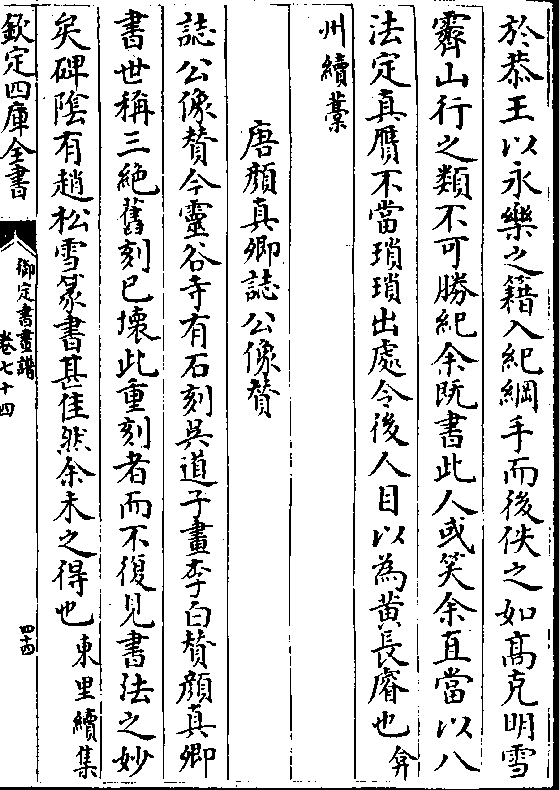 於恭王以永樂之籍入紀綱手而後佚之如髙克明雪
霽山行之類不可勝紀余既書此人或笑余直當以八
法定真贋不當瑣瑣出處令後人目以為黄長睿也弇
州續藁
唐顔真卿誌公像贊
誌公像贊今靈谷寺有石刻吳道子畫李白贊顔真卿
書世稱三絶舊刻已壞此重刻者而不復見書法之妙
矣碑陰有趙松雪篆書甚佳然余未之得也東里續集
欽定四庫全書
御定書畫譜
卷七十四
四十四